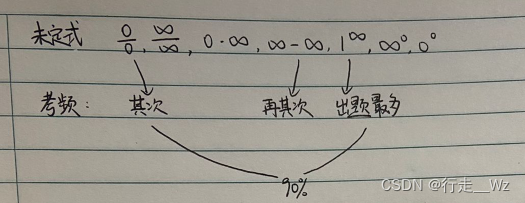 未定式 0/0, ∞/∞, 0·∞, ∞-∞, 1^∞, ∞^0, 0^0
考频: 其次 再其次 出题最多
90%
CSDN @行走__Wz